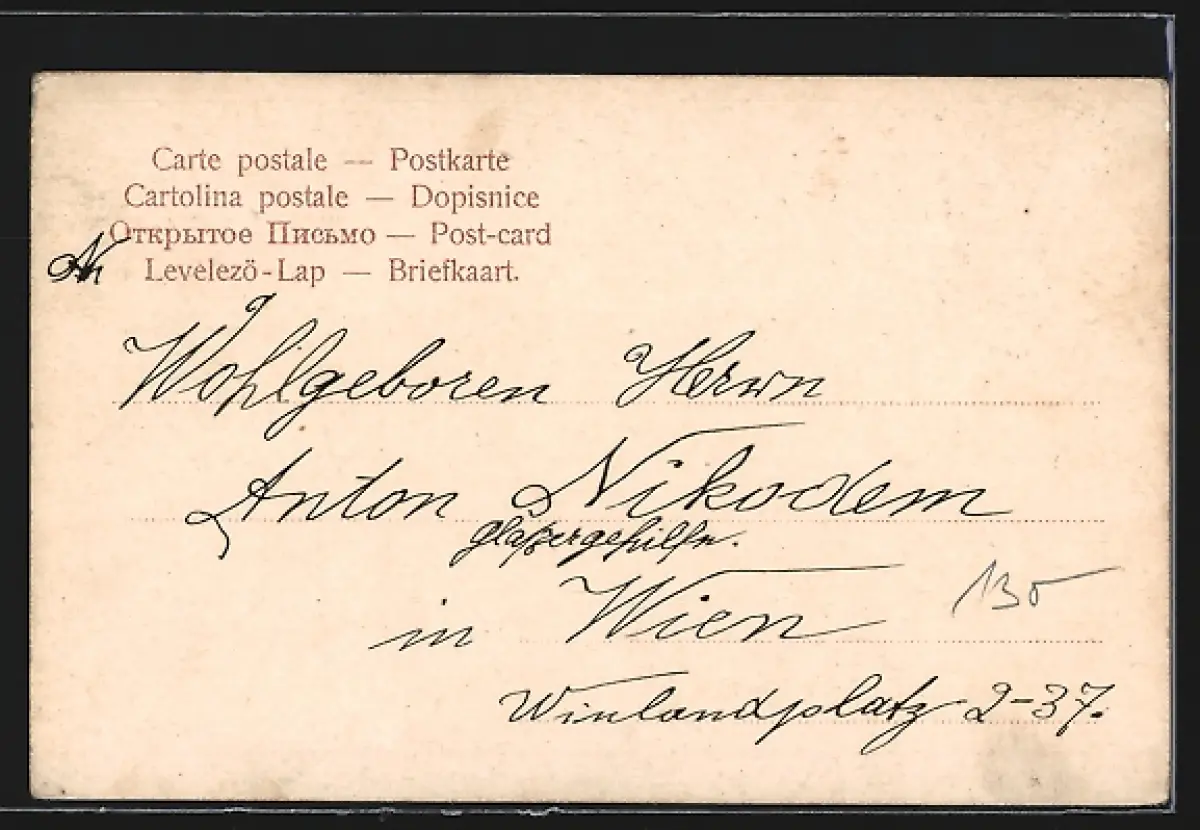 Carte postale — Postkarte
Cartolina postale — Dopisnice
Открытое Письмо — Post-card
Levelezö-Lap — Briefkaart.
An
Wohlgeboren Herrn
Anton Nikodem
glasergehilfe.
in Wien
Winlandplatz 2-37.
130